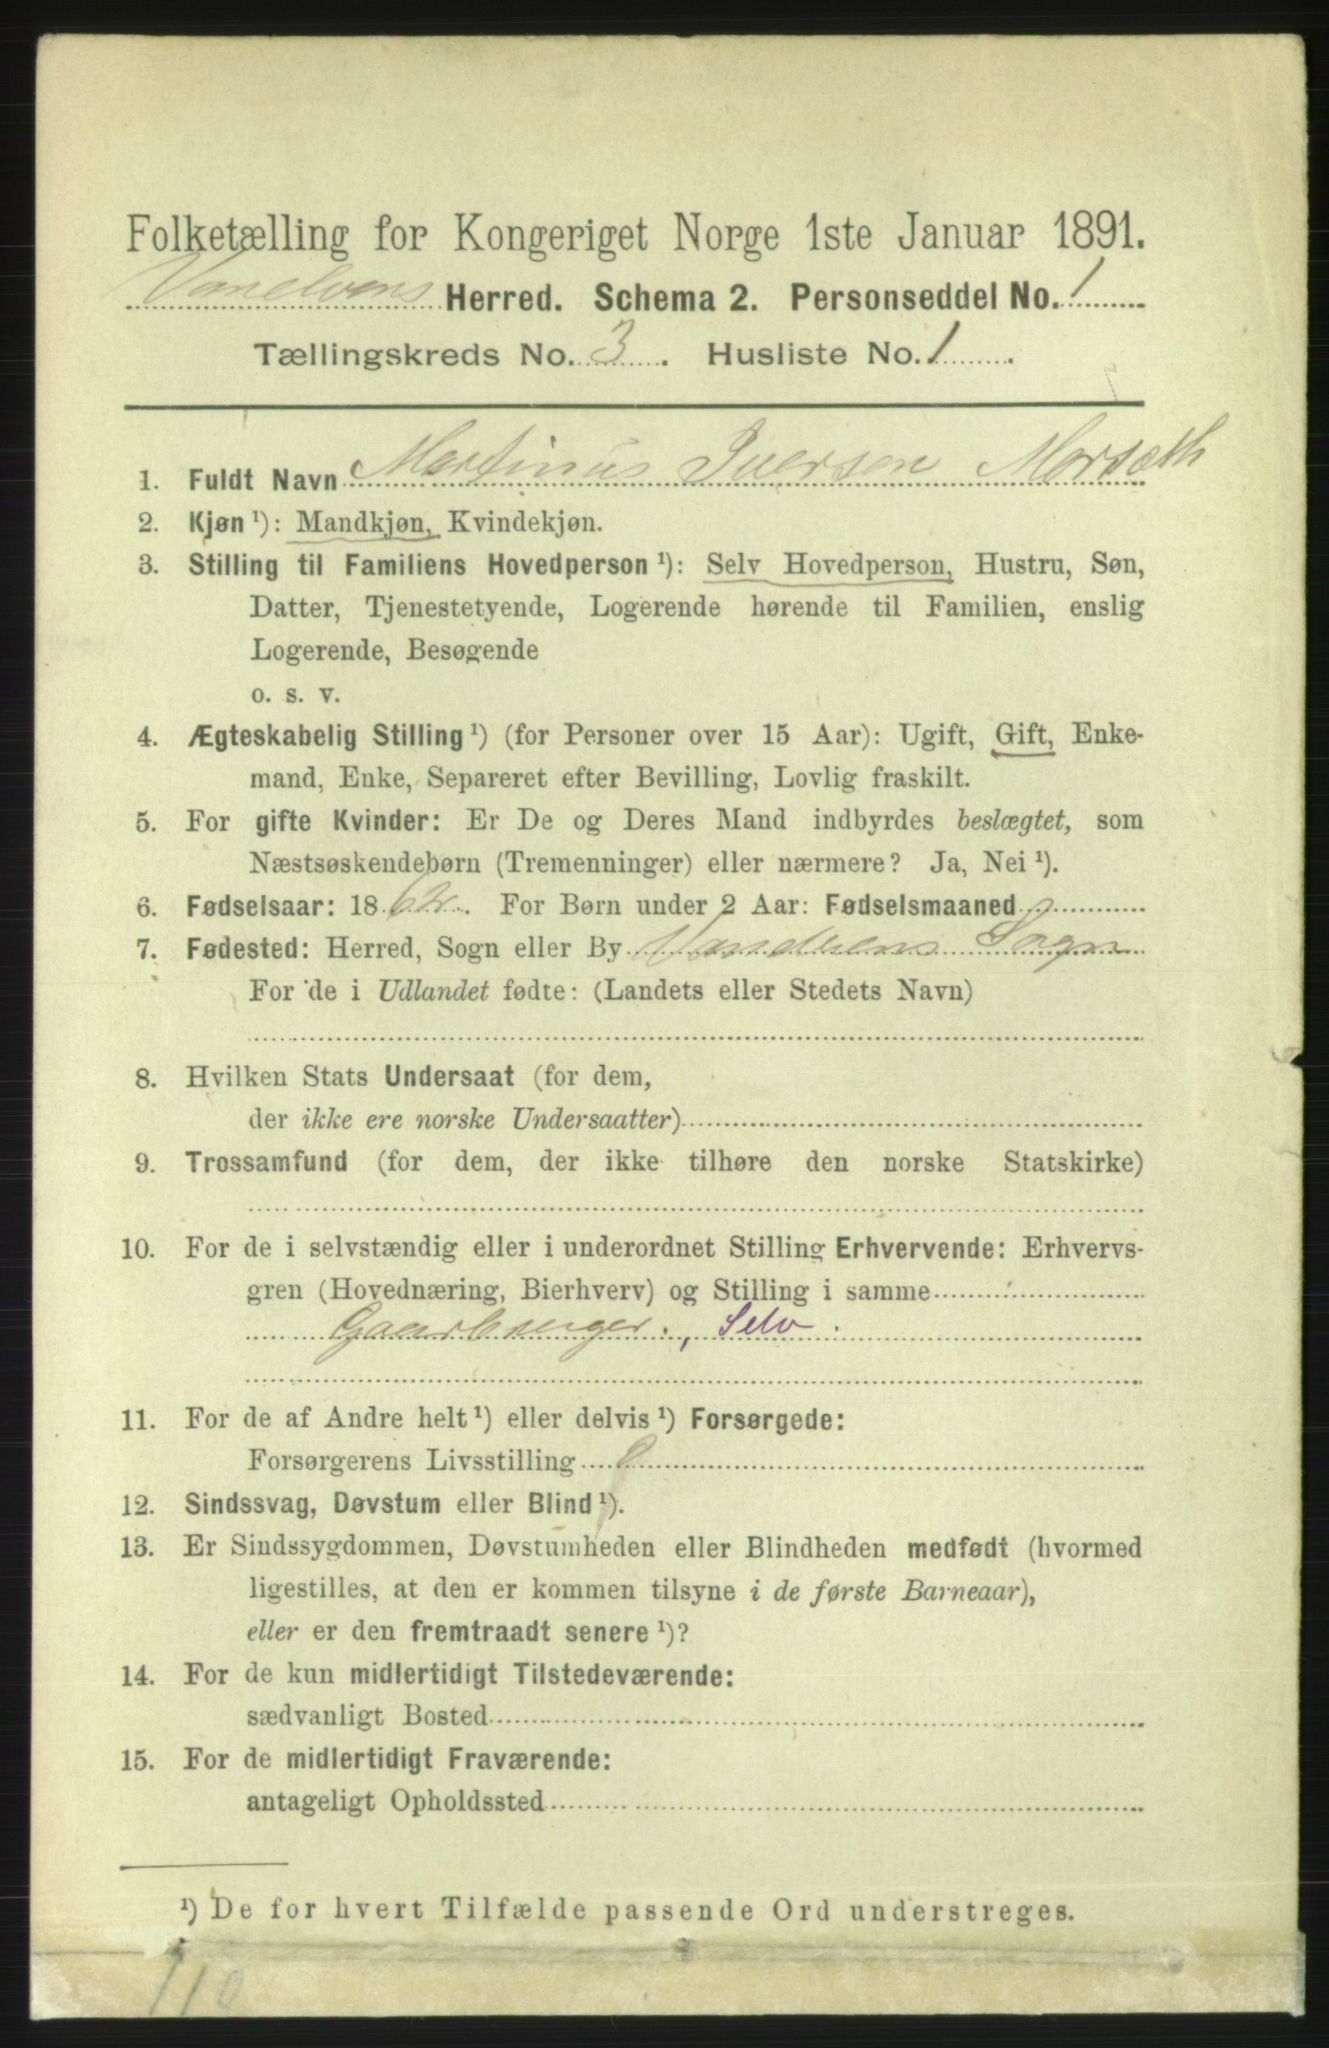 Folketælling for Kongeriget Norge 1ste Januar 1891.
Vanelvens Herred. Schema 2. Personseddel No. 1
Tællingskreds No. 3. Husliste No. 1.
1. Fuldt Navn Martinus Iversen Morsæth
2. Kjøn ¹): Mandkjøn, Kvindekjøn.
3. Stilling til Familiens Hovedperson ¹): Selv Hovedperson, Hustru, Søn,
Datter, Tjenestetyende, Logerende hørende til Familien, enslig
Logerende, Besøgende
o. s. v.
4. Ægteskabelig Stilling ¹) (for Personer over 15 Aar): Ugift, Gift, Enke-
mand, Enke, Separeret efter Bevilling, Lovlig fraskilt.
5. For gifte Kvinder: Er De og Deres Mand indbyrdes beslægtet, som
Næstsøskendebørn (Tremenninger) eller nærmere? Ja, Nei ¹).
6. Fødselsaar: 1862. For Børn under 2 Aar: Fødselsmaaned
7. Fødested: Herred, Sogn eller By Vanelvens Sogn
For de i Udlandet fødte: (Landets eller Stedets Navn)
8. Hvilken Stats Undersaat (for dem,
der ikke ere norske Undersaatter)
9. Trossamfund (for dem, der ikke tilhøre den norske Statskirke)
10. For de i selvstændig eller i underordnet Stilling Erhvervende: Erhvervs-
gren (Hovednæring, Bierhverv) og Stilling i samme
Gaardbruger., Selv.
11. For de af Andre helt ¹) eller delvis ¹) Forsørgede:
Forsørgerens Livsstilling
12. Sindssvag, Døvstum eller Blind ¹).
13. Er Sindssygdommen, Døvstumheden eller Blindheden medfødt (hvormed
ligestilles, at den er kommen tilsyne i de første Barneaar),
eller er den fremtraadt senere ¹)?
14. For de kun midlertidigt Tilstedeværende:
sædvanligt Bosted
15. For de midlertidigt Fraværende:
antageligt Opholdssted
¹) De for hvert Tilfælde passende Ord understreges.
110